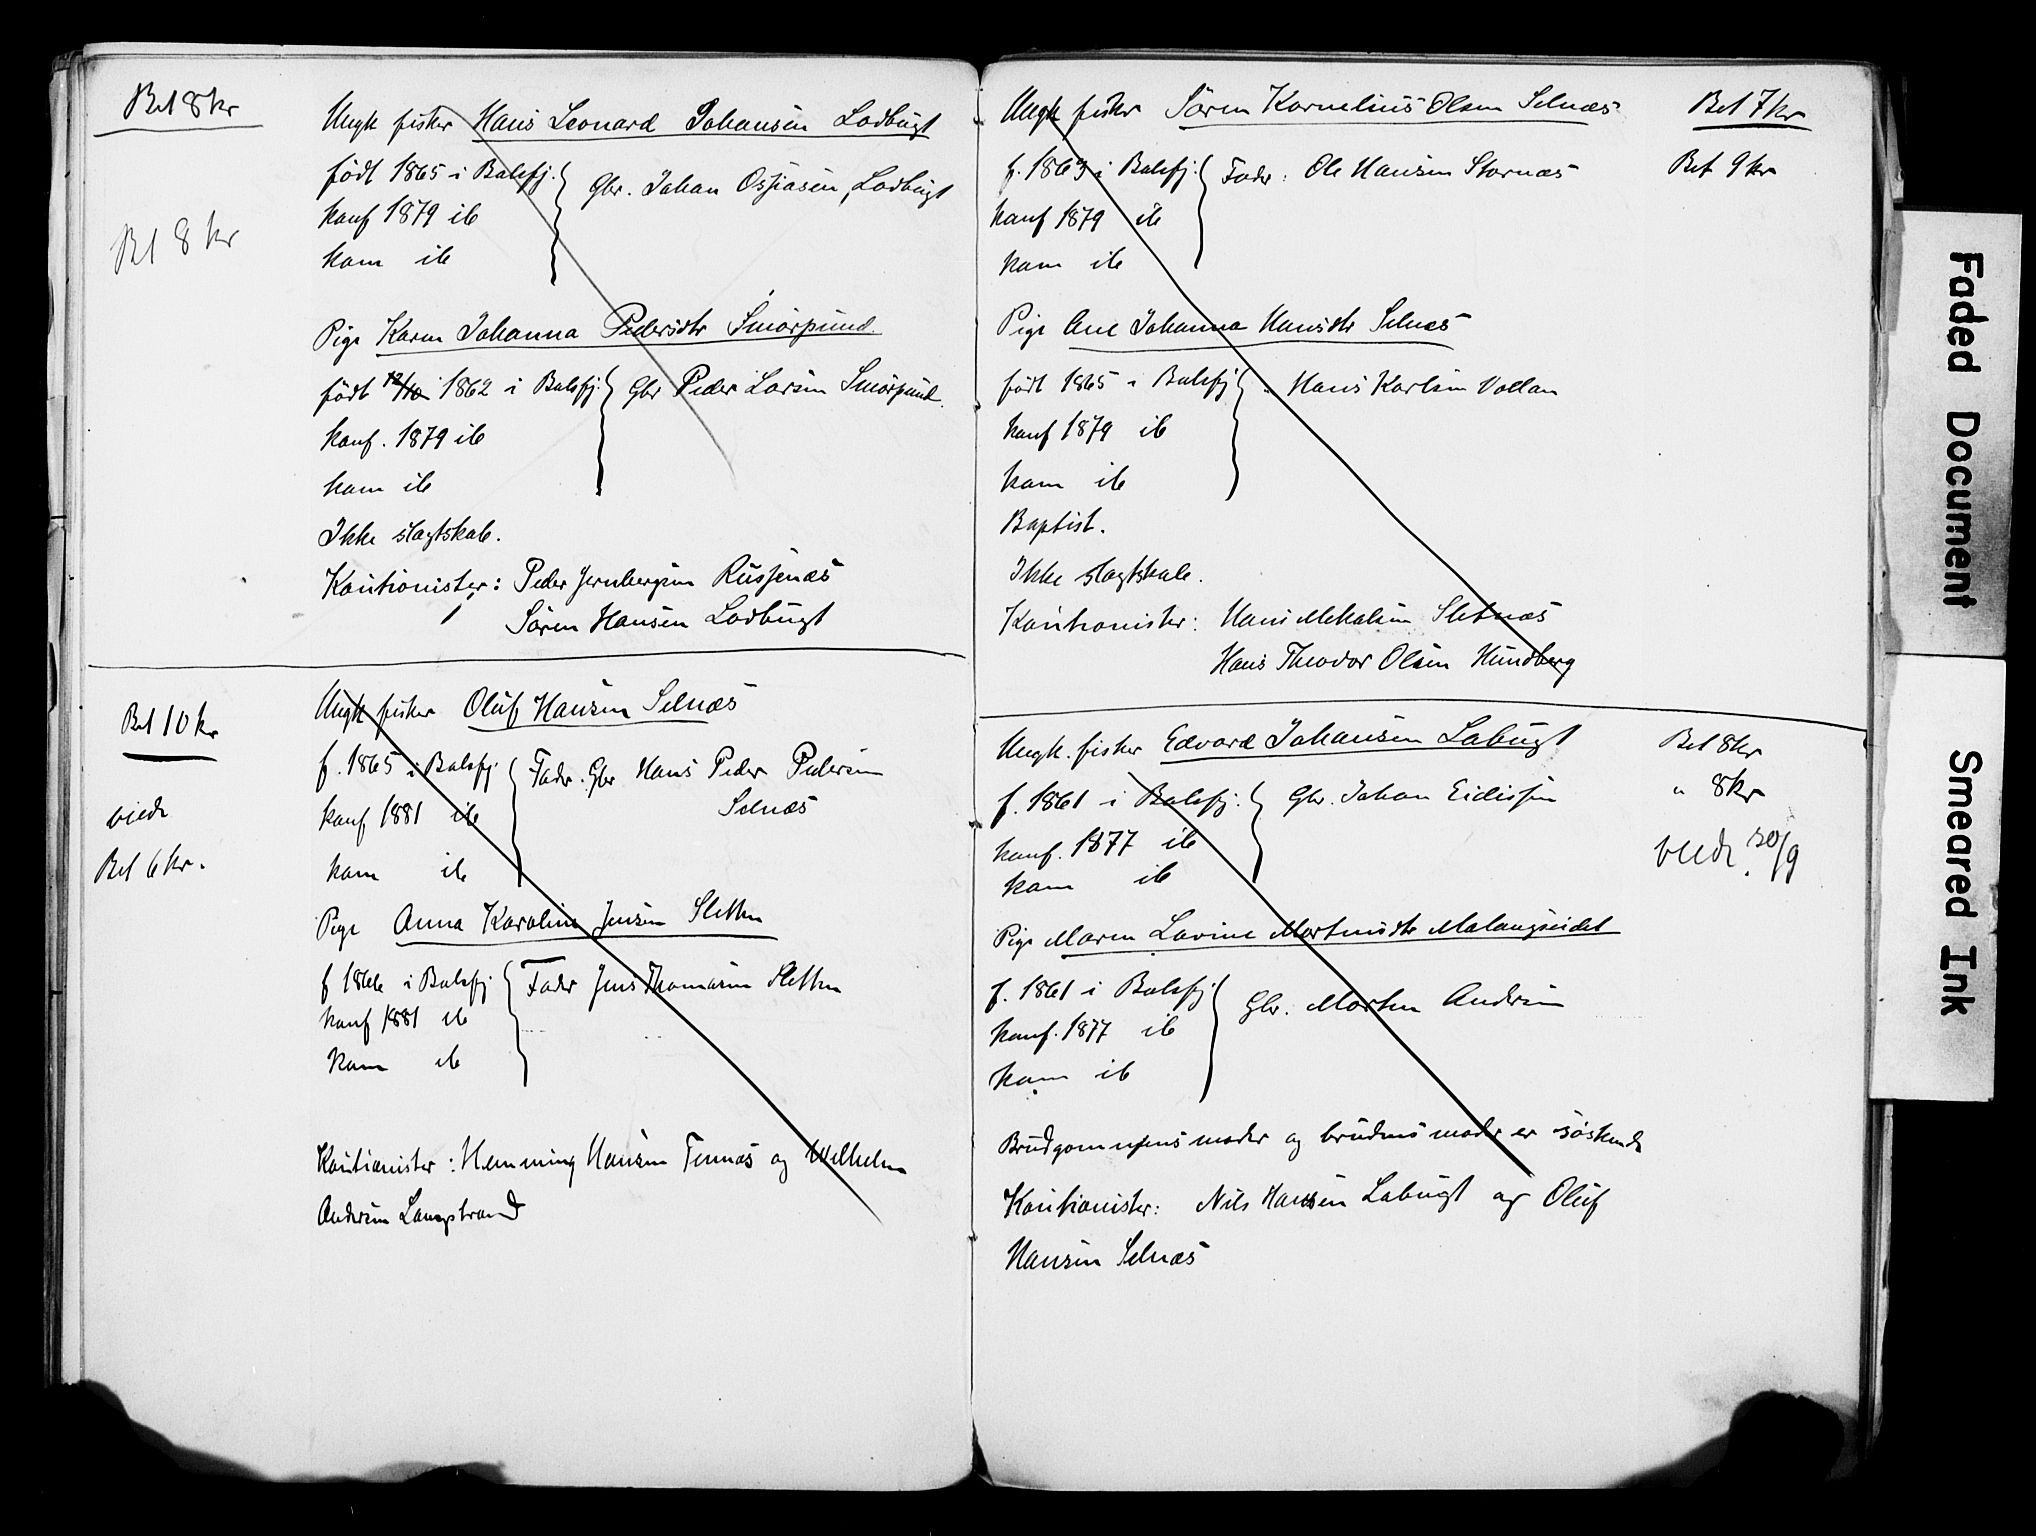 Bet 8 kr
Bet 8 kr
Ungk fisker Hans Leonard Johansen Lodbugt
født 1865 i Balsfj. Gbr. Johan Ossiasen, Lodbugt
konf 1879 ib
kom ib
Pige Karen Johanna Pedersdtr Smörpund.
født 12/10 1862 i Balsfj. Gbr Peder Larsen Smörpund.
konf. 1879 ib
kom ib
Ikke slagtskab.
Kautionister: Peder Jernbergsen Russenæs
Sören Hansen Lodbugt
Bet 10 kr
viede
Bet 6 kr.
Ungk fisker Oluf Hansen Selnæs
f. 1865 i Balsfj. Fader: Gbr Hans Peder Pedersen
Selnæs
konf 1881 ib
kom ib
Pige Anna Karoline Jensen Sletten
f 1866 i Balsfj Fader Jens Thomasen Sletten
konf 1881 ib
kom ib
Kautionister: Hemming Hansen Tennæs og Wilhelm
Andersen Langstrand
Ungk fisker Sören Kornelius Olsen Selnæs
f. 1863 i Balsfj. Fader: Ole Hansen Stornæs
konf 1879 ib
kom ib
Pige Ane Johanna Hansdtr Selnæs
født 1865 i Balsfj " Hans Karlsen Vollan
konf 1879 ib
kom ib
Baptist.
Ikke slagtskab.
Kautionister: Hans Mikalsen Sletnæs
Hans Theodor Olsen Hundberg
Bet 7 kr
Bet 9 kr
Ungk. fisker Edvard Johansen Labugt
f. 1861 i Balsfj. Gbr. Johan Eidissen
konf. 1877 ib
kom ib
Pige Maren Lavine Mortensdtr Malangseidet
f. 1861 i Balsfj Gbr. Morten Andersen
konf. 1877 ib
kom ib
Brudgommens moder og brudens moder er söskende
Kautionister: Nils Hansen Labugt og Oluf
Hansen Selnæs
Bet 8 kr
" 8 kr
viede 30/9
Faded Document
Smeared Ink